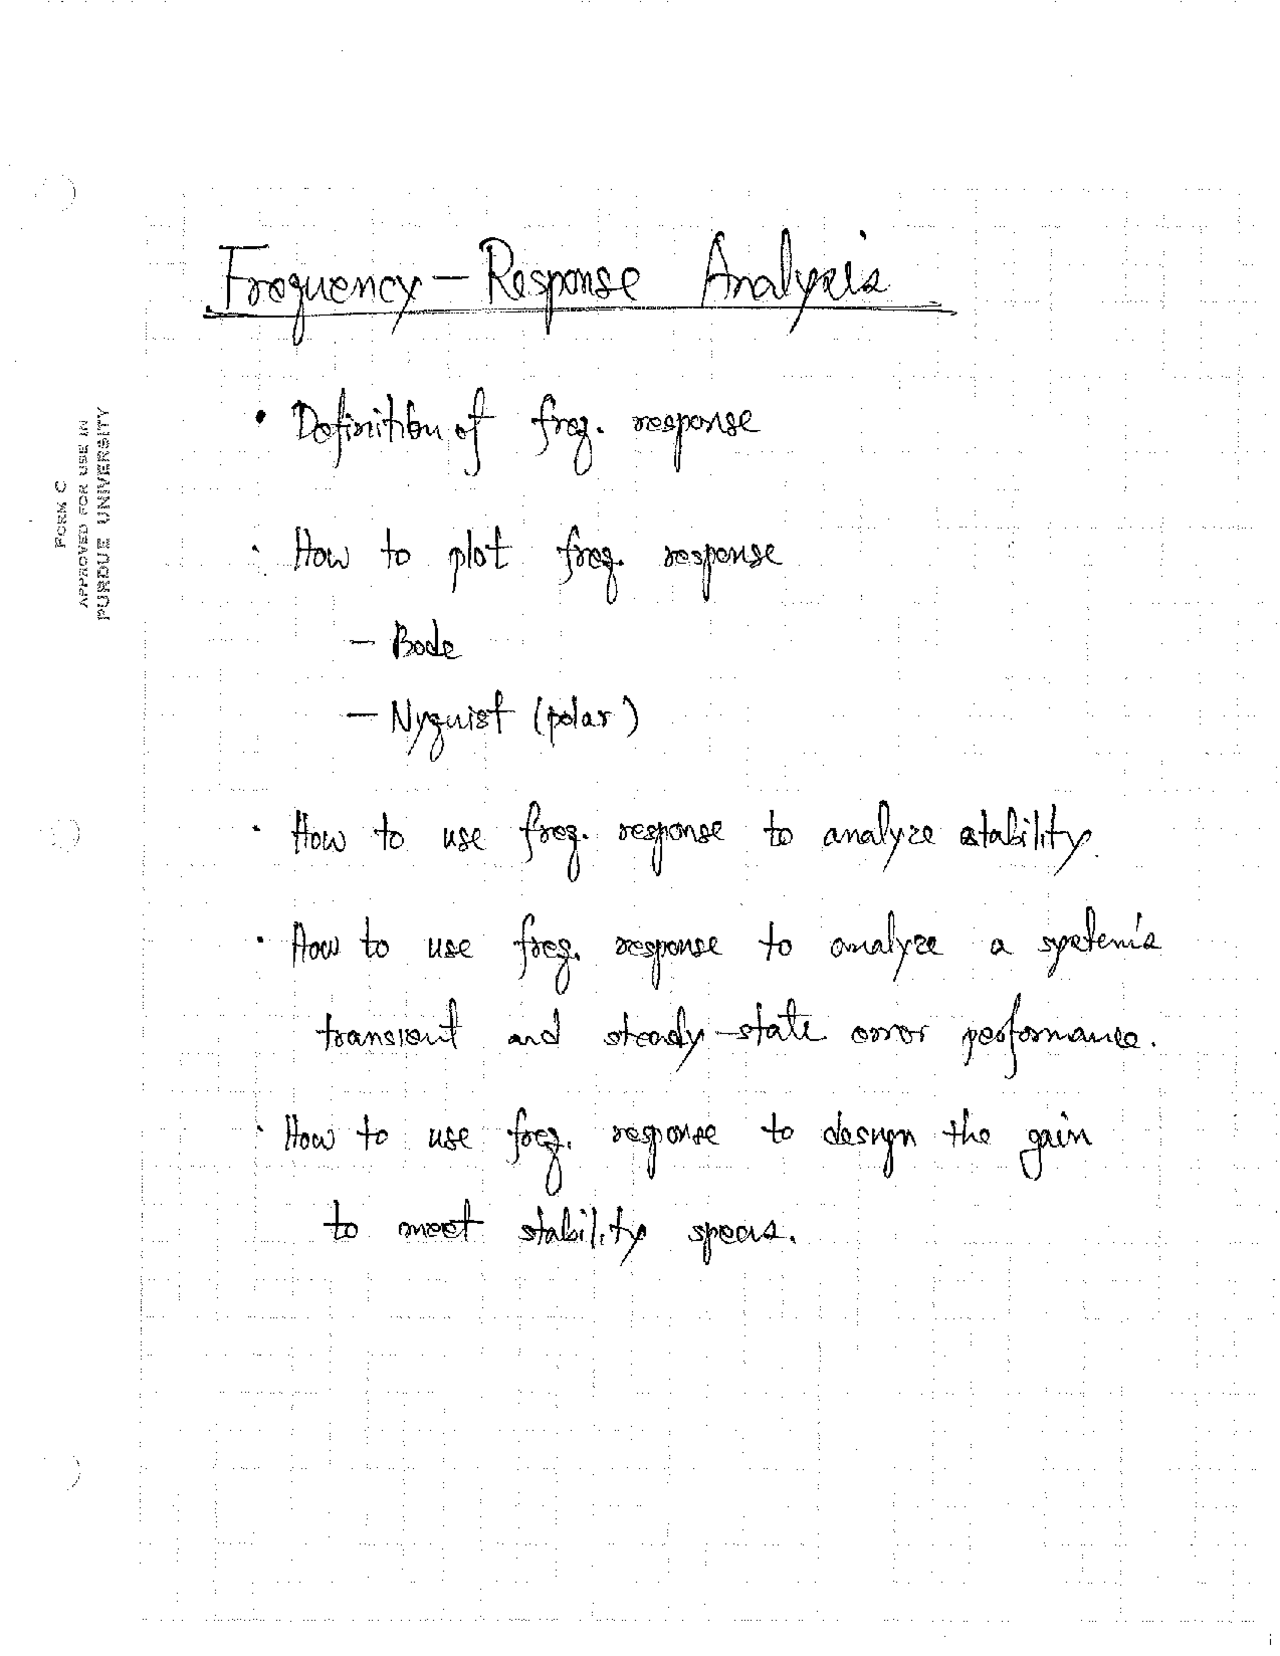 Frequency-Response Analysis
• Definition of freq. response
• How to plot freq. response
- Bode
- Nyquist (polar)
• How to use freq. response to analyze stability.
• How to use freq. response to analyze a system's
transient and steady-state error performance.
• How to use freq. response to design the gain
to meet stability specs.
FORM C
APPROVED FOR USE IN
PURDUE UNIVERSITY